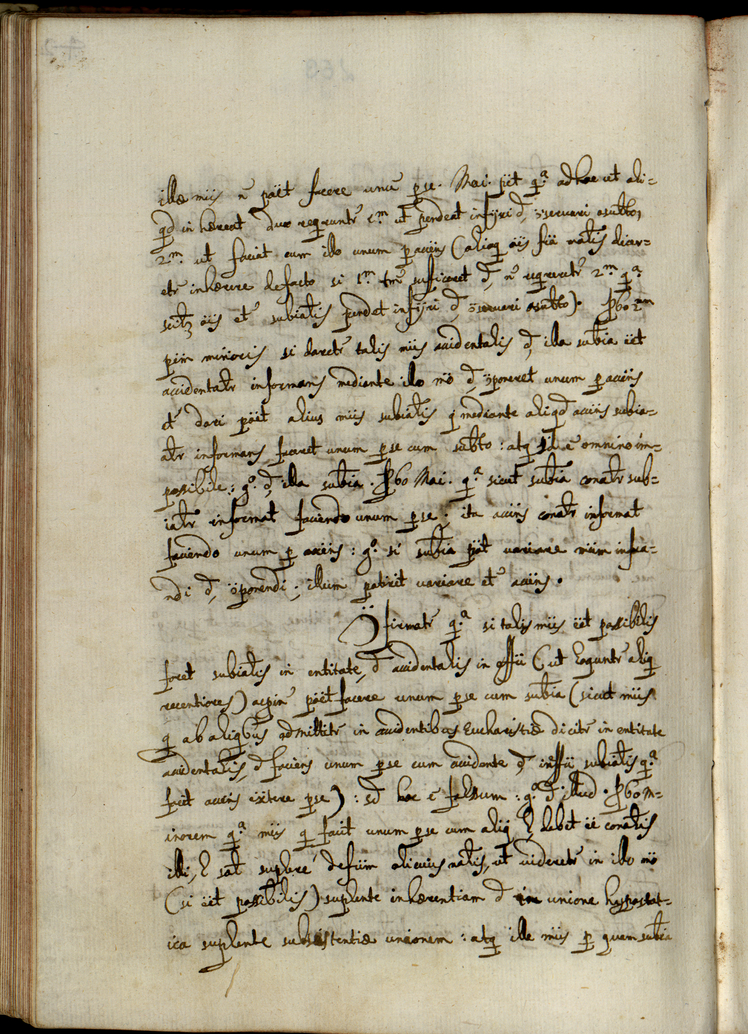 illæ miis n̄ pāet facere unū p se. Mai. pēt q.ª ad hoc ut ali=
qd in hæreat duo reqruntr 1.m ut pendeat in fieri &, conservari a subto,
2.m ut faciat cum illo unum p acciens (alioq ōis fiū natlis dicer=
etr inhærere de facto si 1.m tm̄ sufficeret &, n̄ reqreretr 2.m q.ª
scilz ōis et subialis pendet in fieri & conservari a subto). Pbo 2am
pem minoris si daretr talis miis accidentalis &, illa subia ēet
accidentalr informans mediante illo mō & cōponeret unum p acciens
et dari pāet alius miis subialis q mediante aliqd acciens subia=
alr informans faceret unum p se cum subto: atq ē omnino im=
possibile: g.º & illa subia. Pbo Mai. q.ª sicut subia conatr sub=
ialr informat faciendo unum p se; ita acciens conatr informat
faciendo unum p acciens: g.º si subia pāet variare mium informa=
ndi & cōponendi; illum poterit variare et acciens.
Cōfirmatr q.ª si talis miis ēet possibilis
foret subialis in entitate, & accidentalis in offii (ut loquntr aliq
recentiores) ac pin̄ pāet facere unum p se cum subia (sicut miis
q ab aliqbus admittitr in accidentibus Eucharistiæ dicitr in entitate
accidentalis, & faciens unum p se cum accidente & in offii subialis q.ª
facit acciens existere p se): sd hoc ē falsum: g.º & illud. Pbo M=
inorem q.ª miis q facit unum p se cum aliq, debet ēe conalis
illi, sat suplere defum alicuius natlis, ut videretr in illo mō
(si ēet possibilis) suplente inhærentiam & in unione hypostat=
ica suplente subsistentiæ unionem: atq ille miis p quem subia